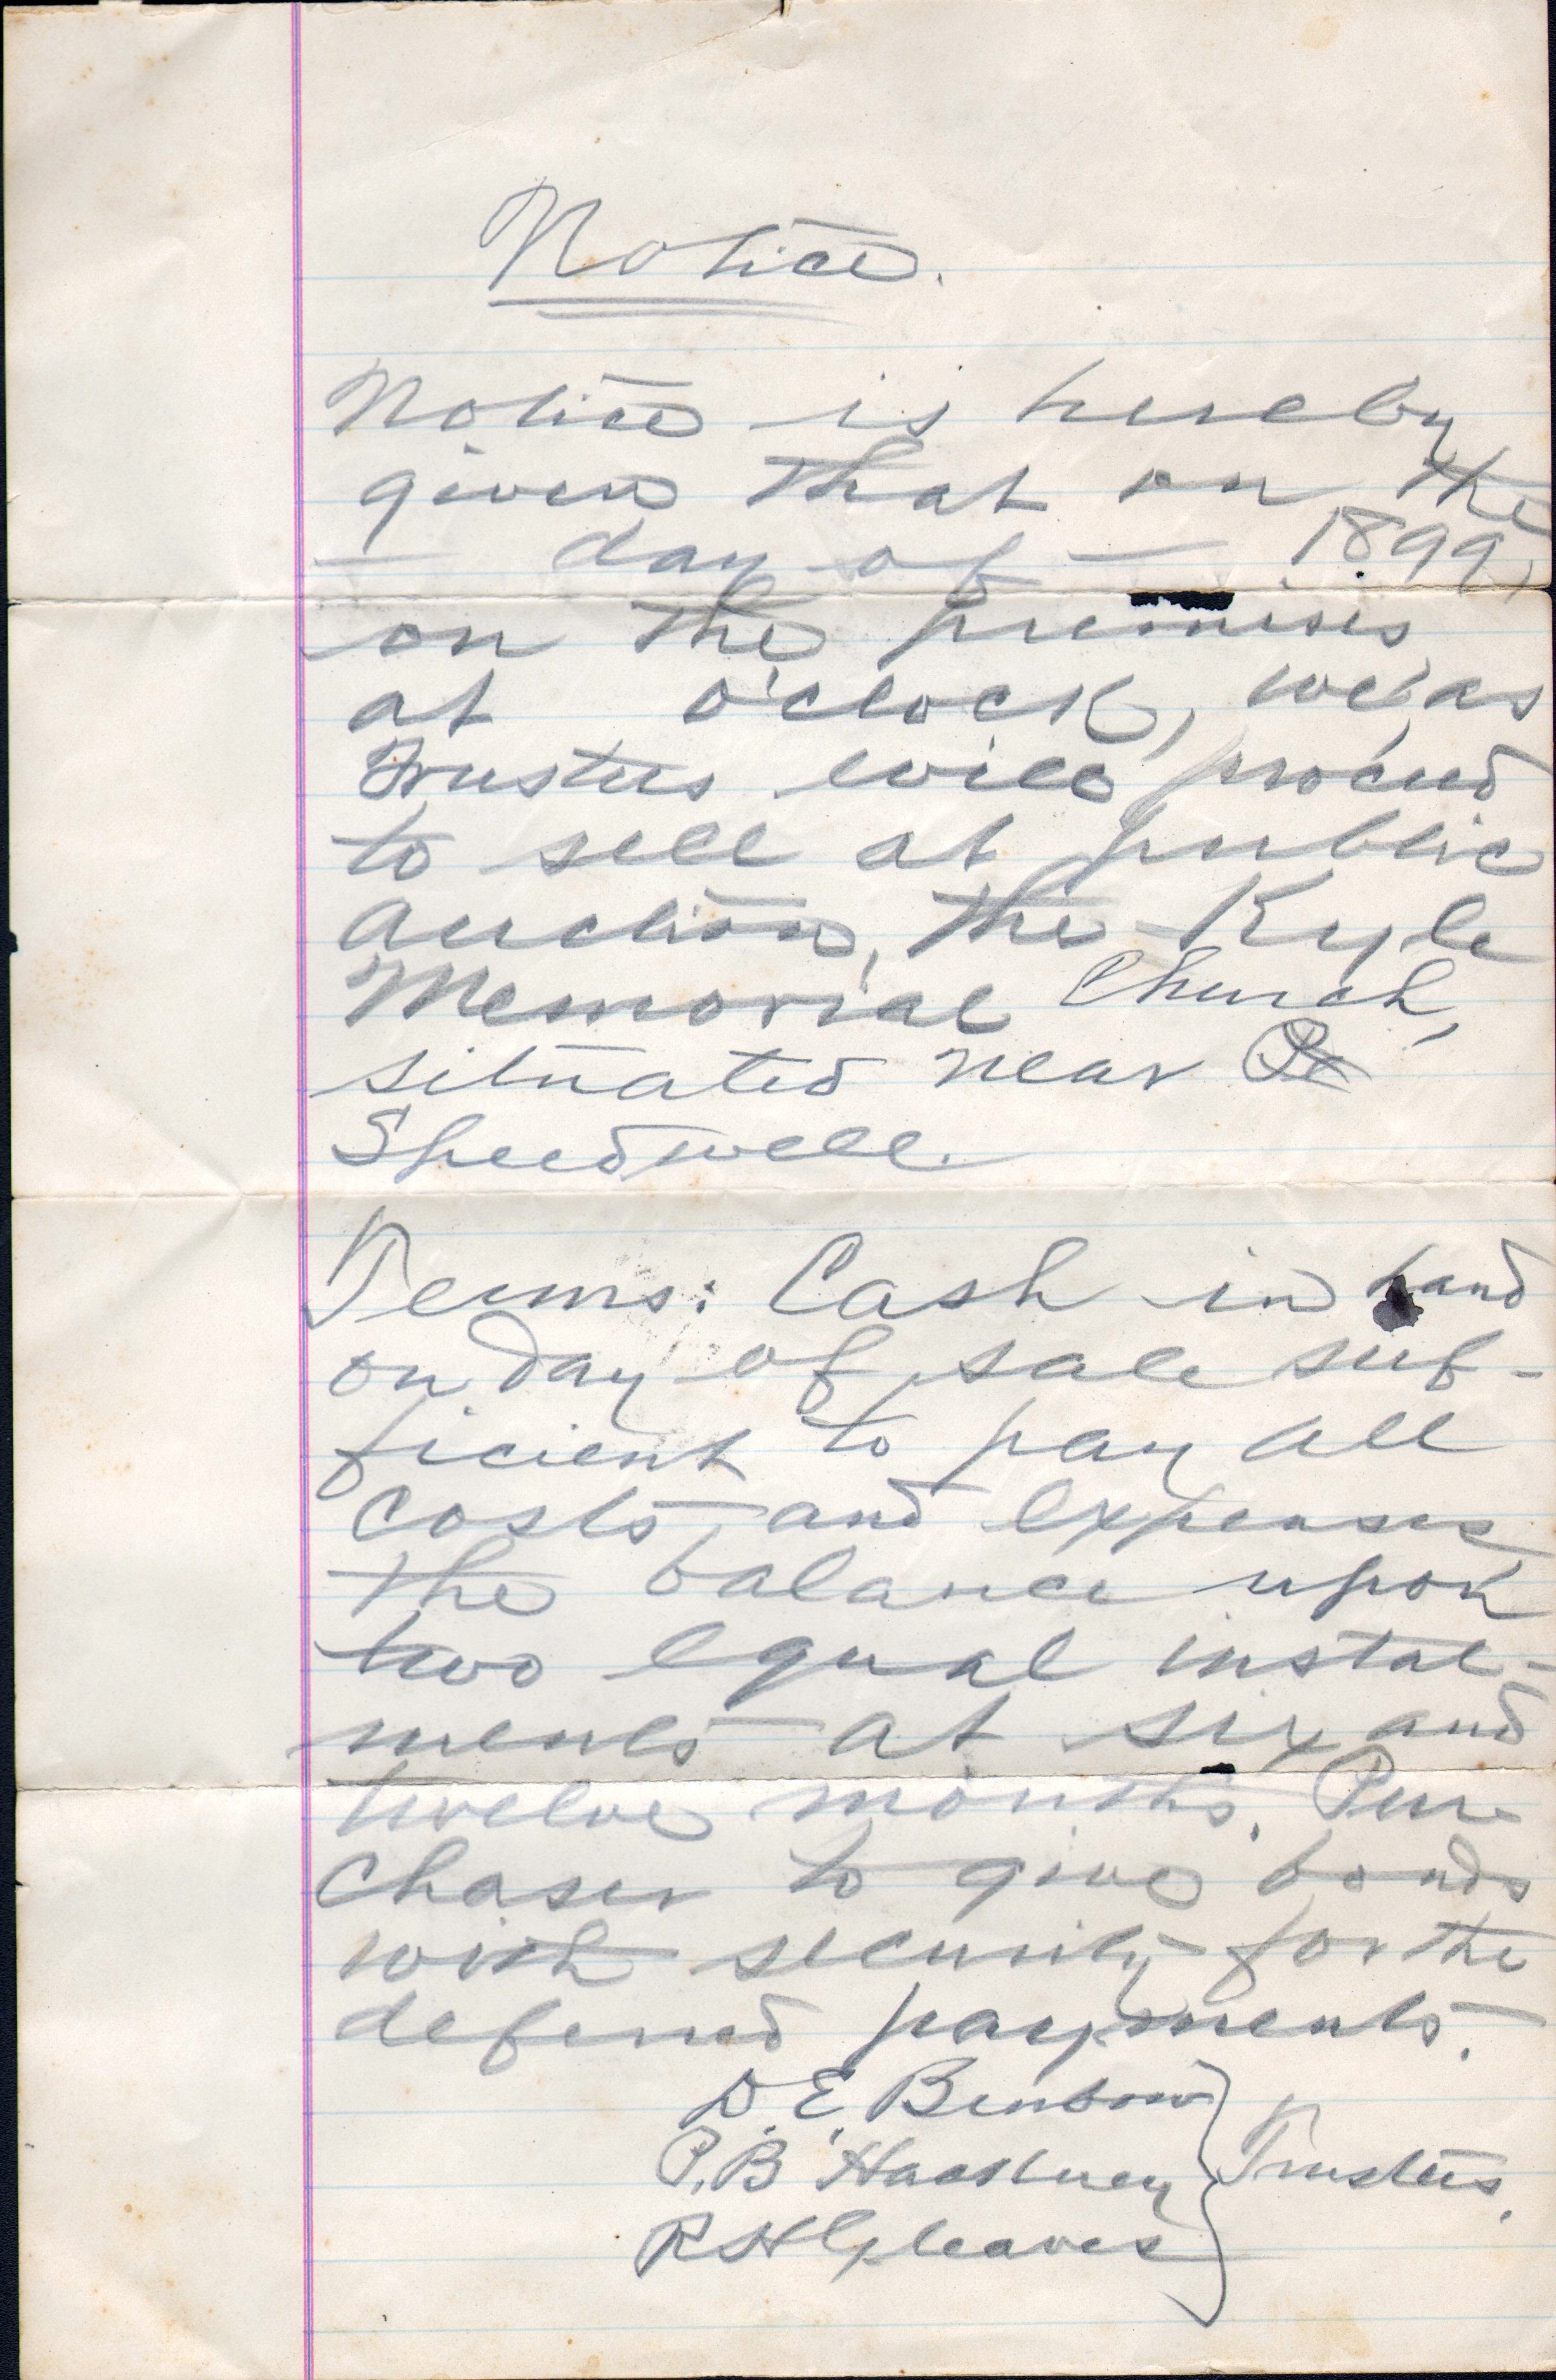 Notice.
Notice is hereby
given that on the
— day of — 1899,
on the premises
at o'clock, we, as
Trustees will proceed
to sell at public
auction, the Kyle
Memorial Church,
situated near
Speedwell.
Terms: Cash in hand
on day of sale suf-
ficient to pay all
costs and expenses
the balance upon
two equal instal-
ments at six and
twelve months. Pur-
chaser to give bonds
with security for the
deferred payments.
D. E. Benbow
P. B. Hackney } Trustees.
R H Gleaves